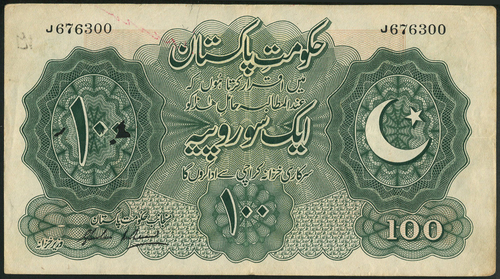 J 676300
J 676300
حکومتِ پاکستان
میں اقرار کرتا ہوں کہ
عندالمطالبہ حامل ہذا کو
ایک سو روپیہ
سرکاری خزانہ کراچی سے ادا کروں گا
۱۰۰
۱۰۰
100
منجانب حکومت پاکستان
وزیر خزانہ